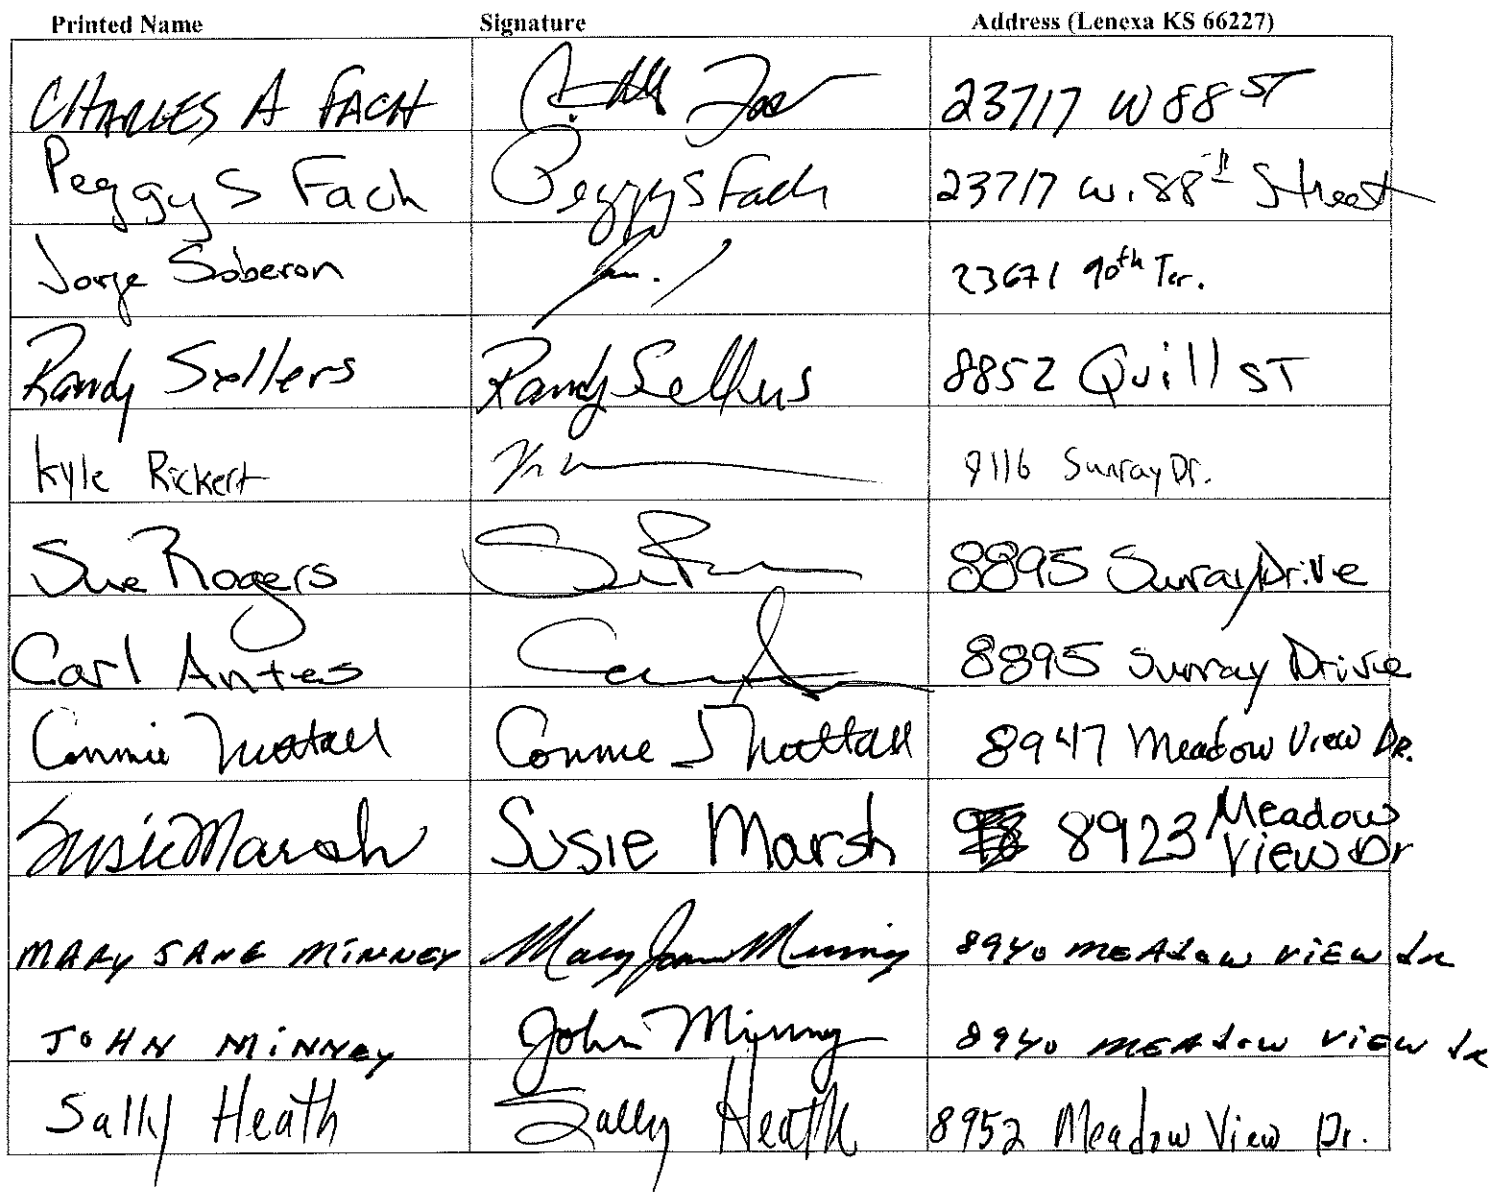 Printed Name Signature Address (Lenexa KS 66227)
CHARLES A FACH 23717 W 88 ST
Peggy S Fach Peggy S Fach 23717 W. 88th Street
Jorge Soberon 23671 90th Ter.
Randy Sellers Randy Sellers 8852 Quill ST
Kyle Rickert 9116 Sunray Dr.
Sue Rogers 8895 Sunray Drive
Carl Antes 8895 Sunray Drive
Connie Nuttall Connie J Nuttall 8947 Meadow View DR.
Susie Marsh Susie Marsh 8923 Meadow
View Dr
MARY JANE MINNEY Mary Jane Minney 8940 MEADOW VIEW dr
JOHN MINNEY John Minney 8940 MEADOW VIEW dr
Sally Heath Sally Heath 8952 Meadow View Dr.